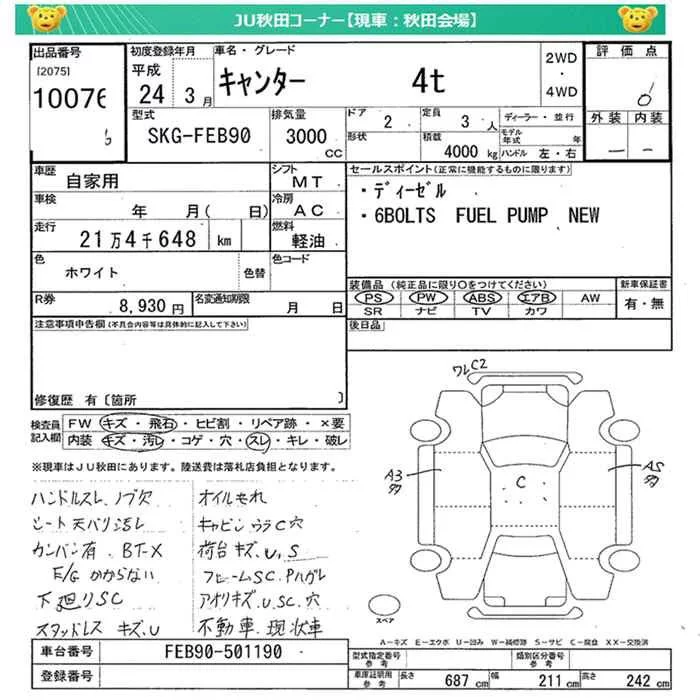 JU秋田コーナー【現車：秋田会場】
出品番号
[2075]
10076
6
初度登録年月
平成
24 3月
車名・グレード
キャンター 4t
2WD
・
4WD
評価点
0
外装 内装
― ―
型式
SKG-FEB90
排気量
3000
CC
ドア
2
形状
定員
3 人
積載
4000 kg
ディーラー・並行
モデル年式 年
ハンドル 左・右
車歴
自家用
シフト
MT
車検
年 月( 日)
冷房
AC
走行
21万4千648 km
燃料
軽油
色
ホワイト
色替
色コード
R券
8,930 円
名変通知期限
月 日
セールスポイント(正常に機能するものに限ります)
・ディーゼル
・6BOLTS FUEL PUMP NEW
装備品(純正品に限り○をつけてください)
PS PW ABS エアB AW
SR ナビ TV カワ
新車保証書
有・無
後日品
注意事項申告欄(不具合内容等は具体的に記入して下さい)
修復歴 有〔箇所 〕
検査員記入欄
FW キズ・飛石・ヒビ割・リペア跡・×要
内装 キズ・汚レ・コゲ・穴・スレ・キレ・破レ
※現車はJU秋田にあります。陸送費は落札店負担となります。
ハンドルスレ、ノブ欠
シート天バリ汚レ
カンバン有.BT-X
E/Gかからない
下廻りSC
スタッドレス キズ.U
オイルもれ
キャビンウラC穴
荷台キズ.U,S
フレームSC.Pハガレ
アオリキズ.U.SC.穴
不動車.現状車
ワレC2
A3
多
C
A5
多
スペア
A－キズ E－エクボ U－凹み W－補修跡 S－サビ C－腐食 XX－交換済
車台番号
FEB90-501190
登録番号
型式指定番号
参考
類別区分番号
参考
車庫証明用
参考
長さ 687 cm 幅 211 cm 高さ 242 cm